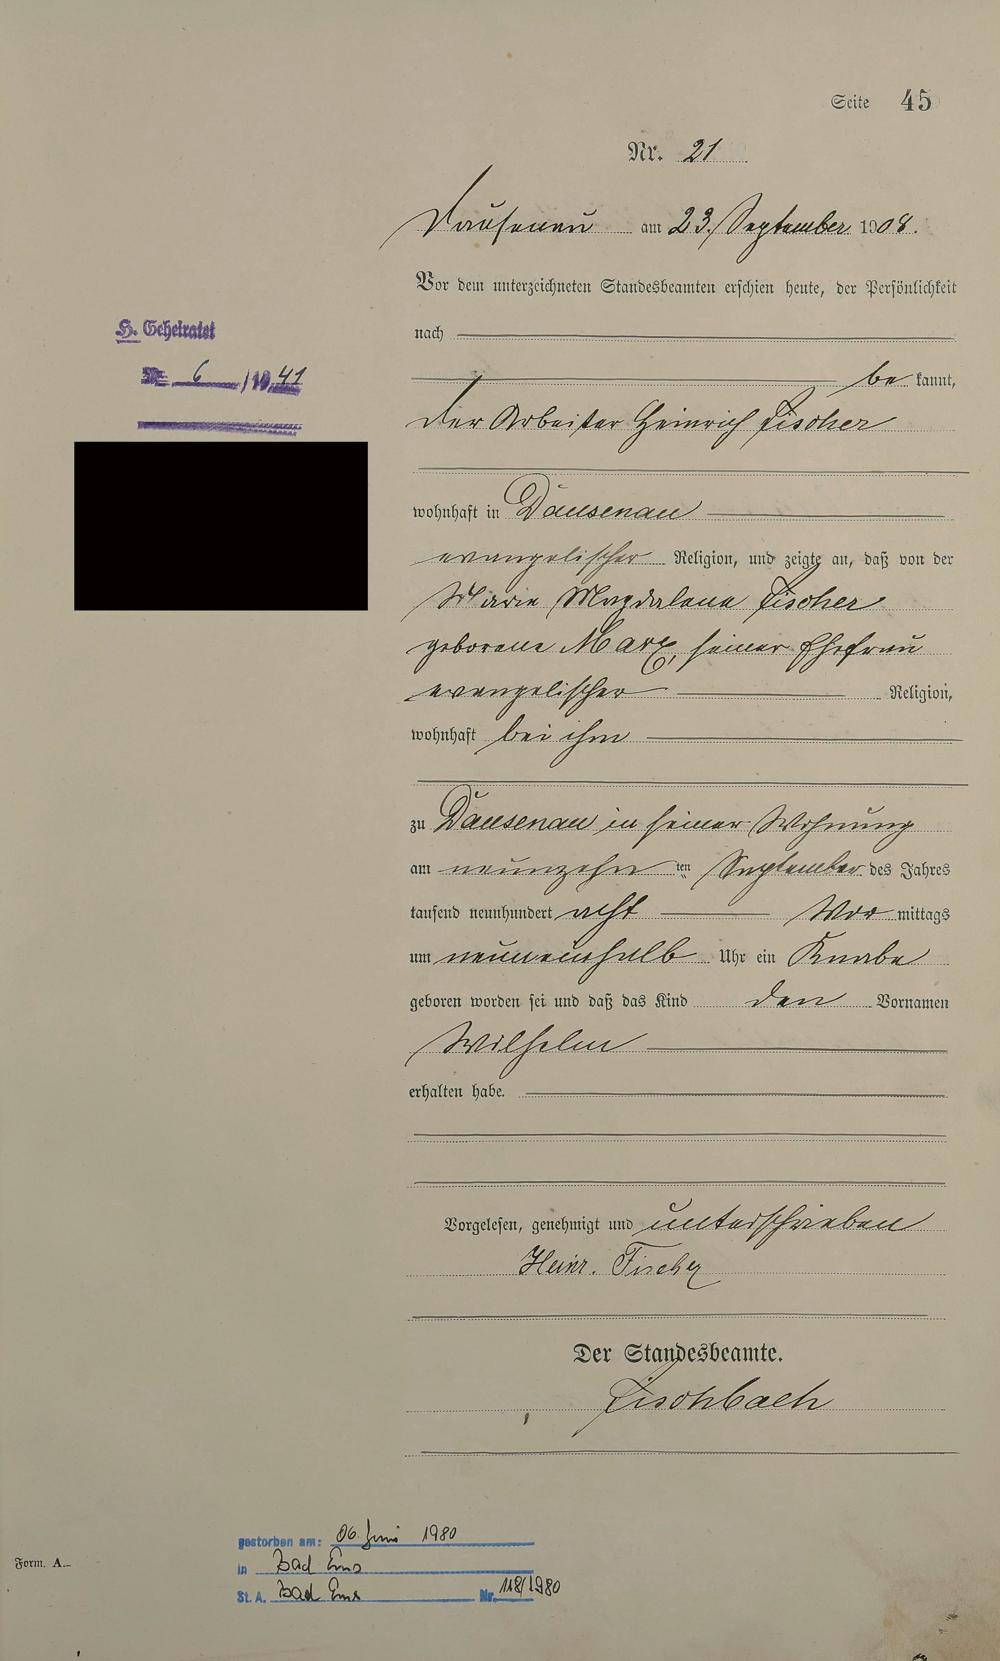 Seite 45
Nr. 21
Dausenau am 23. September 1908.
Vor dem unterzeichneten Standesbeamten erschien heute, der Persönlichkeit
nach
be kannt,
der Arbeiter Heinrich Fischer
wohnhaft in Dausenau
evangelischer Religion, und zeigte an, daß von der
Marie Magdalena Fischer
geborene Marx, seiner Ehefrau
evangelischer Religion,
wohnhaft bei ihm
zu Dausenau in seiner Wohnung
am neunzehn ten September des Jahres
tausend neunhundert acht Vor mittags
um neuneinhalb Uhr ein Knabe
geboren worden sei und daß das Kind den Vornamen
Wilhelm
erhalten habe.
Vorgelesen, genehmigt und unterschrieben
Heinr. Fischer
Der Standesbeamte.
Fischbach
H. Geheiratet
Nr. 6 /19 41
gestorben am: 06. Juni 1980
in Bad Ems
St. A. Bad Ems Nr. 118/1980
Form. A.